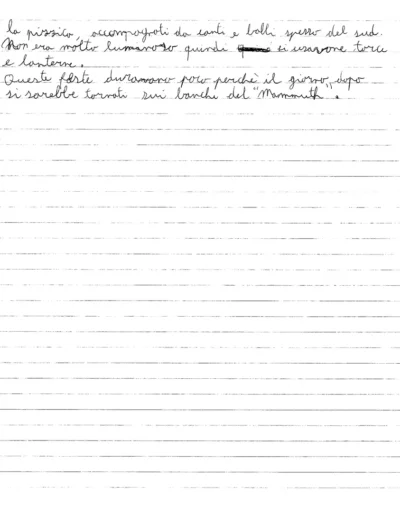 la pizzico, accompagnati da canti e balli spesso del sud.
Non era molto lumanoso quindi si usavone torce
e lanterne.
Queste feste duravano poco perché il giorno dopo
si sarebbe tornati sui banchi del "Mammuth".